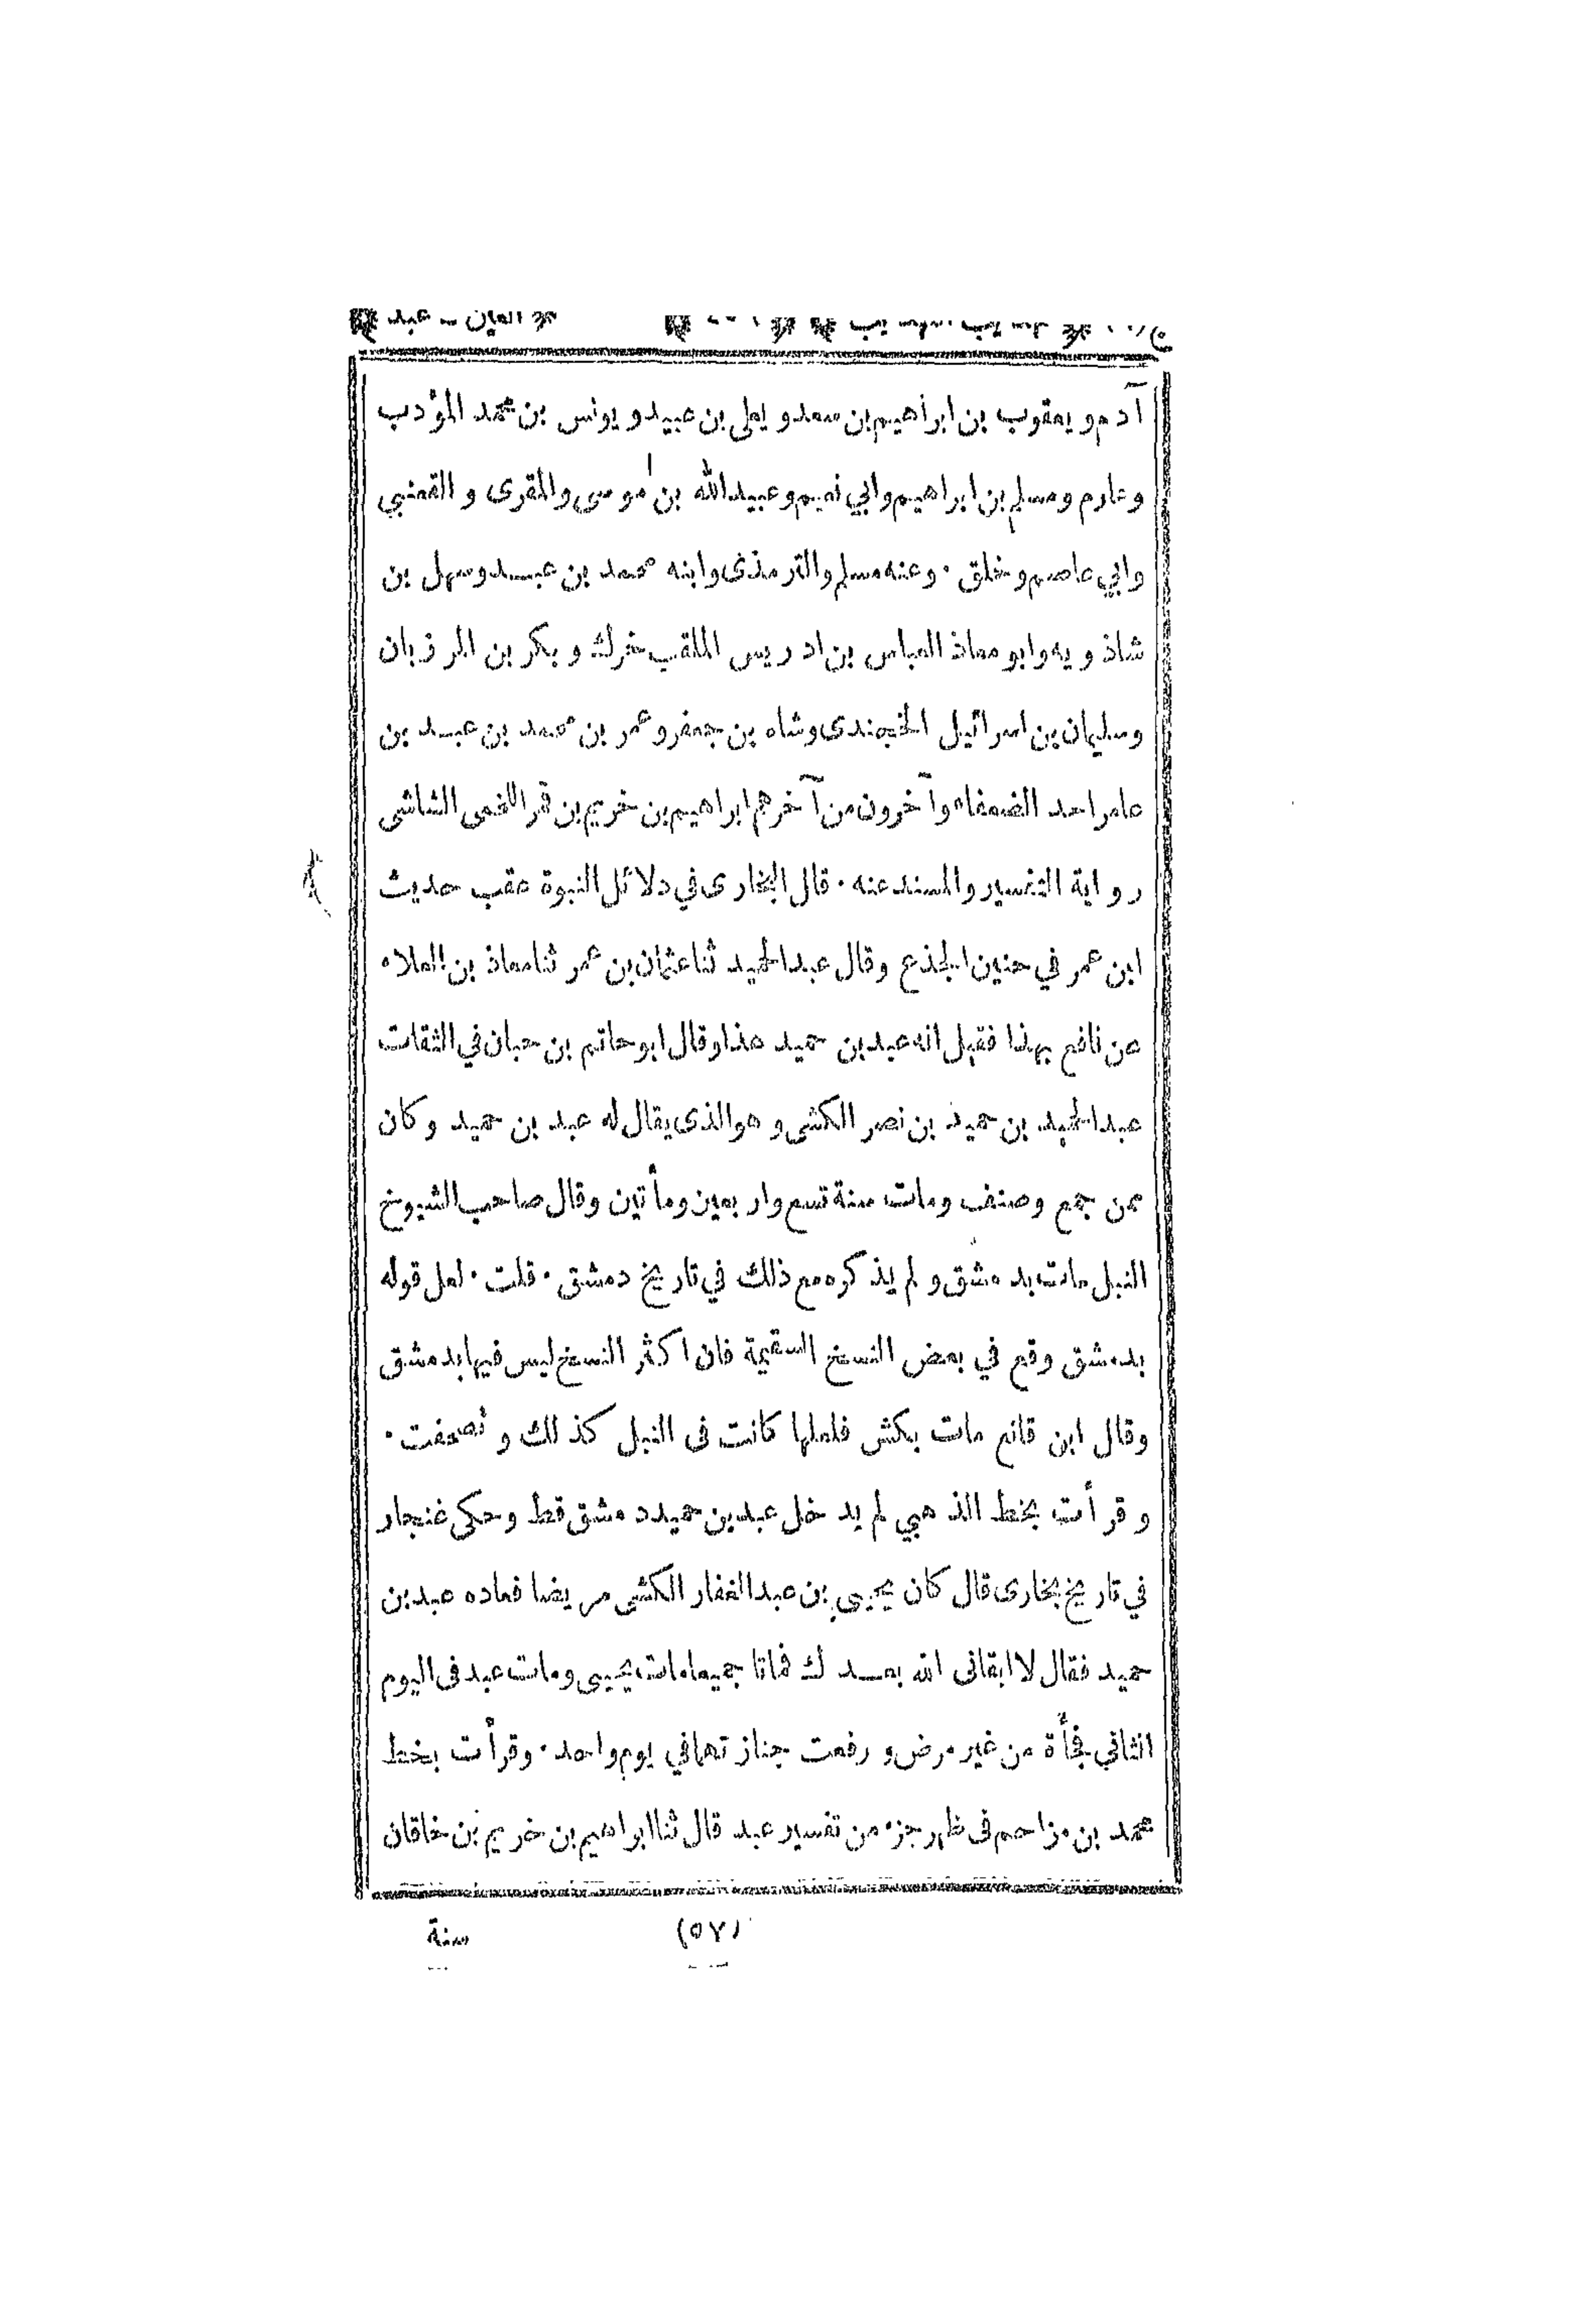 العين - عبد
آدم ويعقوب بن ابراهيم بن سعد ويعلى بن عبيد ويونس بن محمد المؤدب
وعارم ومسلم بن ابراهيم وابي نعيم وعبيد الله بن موسى والمقرى والقعنبي
وابي عاصم وخلق . وعنه مسلم والترمذى وابنه محمد بن عبد وسهل بن
شاذويه وابو معاذ العباس بن ادريس الملقب خرك وبكر بن المرزبان
وسليمان بن اسرائيل الخجندى وشاه بن جعفر وعمر بن محمد بن عبد بن
عامر احد الضعفاء وآخرون من آخرهم ابراهيم بن خريم بن قمر اللخمى الشاشى
رواية التفسير والمسند عنه . قال البخارى في دلائل النبوة عقب حديث
ابن عمر في حنين الجذع وقال عبد الحميد ثنا عثمان بن عمر ثنا معاذ بن العلاء
عن نافع بهذا فقيل انه عبد بن حميد هذا وقال ابو حاتم بن حبان في الثقات
عبد الحميد بن حميد بن نصر الكشى وهو الذى يقال له عبد بن حميد وكان
ممن جمع وصنف ومات سنة تسع واربعين ومأتين وقال صاحب الشيوخ
النبل مات بدمشق ولم يذكره مع ذلك في تاريخ دمشق . قلت . لعل قوله
بدمشق وقع في بعض النسخ السقيمة فان اكثر النسخ ليس فيها بدمشق
وقال ابن قانع مات بكش فلعلها كانت فى النبل كذلك وتصحفت .
وقرأت بخط الذهبي لم يدخل عبد بن حميد دمشق قط وحكى غنجار
في تاريخ بخارى قال كان يحيى بن عبد الغفار الكشى مريضا فعاده عبد بن
حميد فقال لا ابقانى الله بعدك فماتا جميعا مات يحيى ومات عبد فى اليوم
الثاني فجأة من غير مرض ورفعت جنازتهما في يوم واحد . وقرأت بخط
محمد بن مزاحم فى ظهر جزء من تفسير عبد قال ثنا ابراهيم بن خريم بن خاقان
(٥٧)
سنة